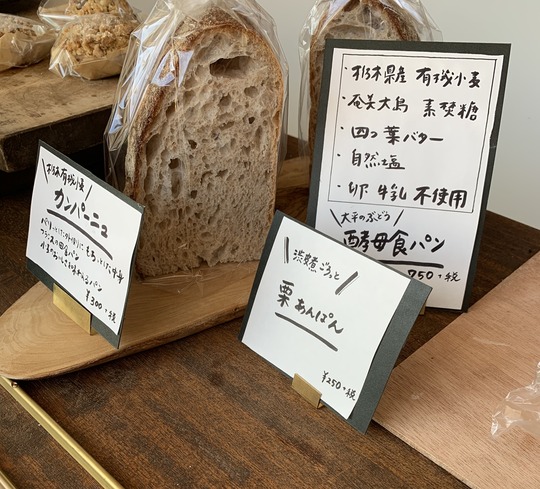 栃木有機小麦
カンパーニュ
フランスの田舎パン
¥300+税
渋煮ごろっと
栗あんぱん
¥250+税
・栃木県産 有機小麦
・奄美大島 素焚糖
・四つ葉バター
・自然塩
・卵 牛乳 不使用
大平のぶどう
酵母食パン
750+税